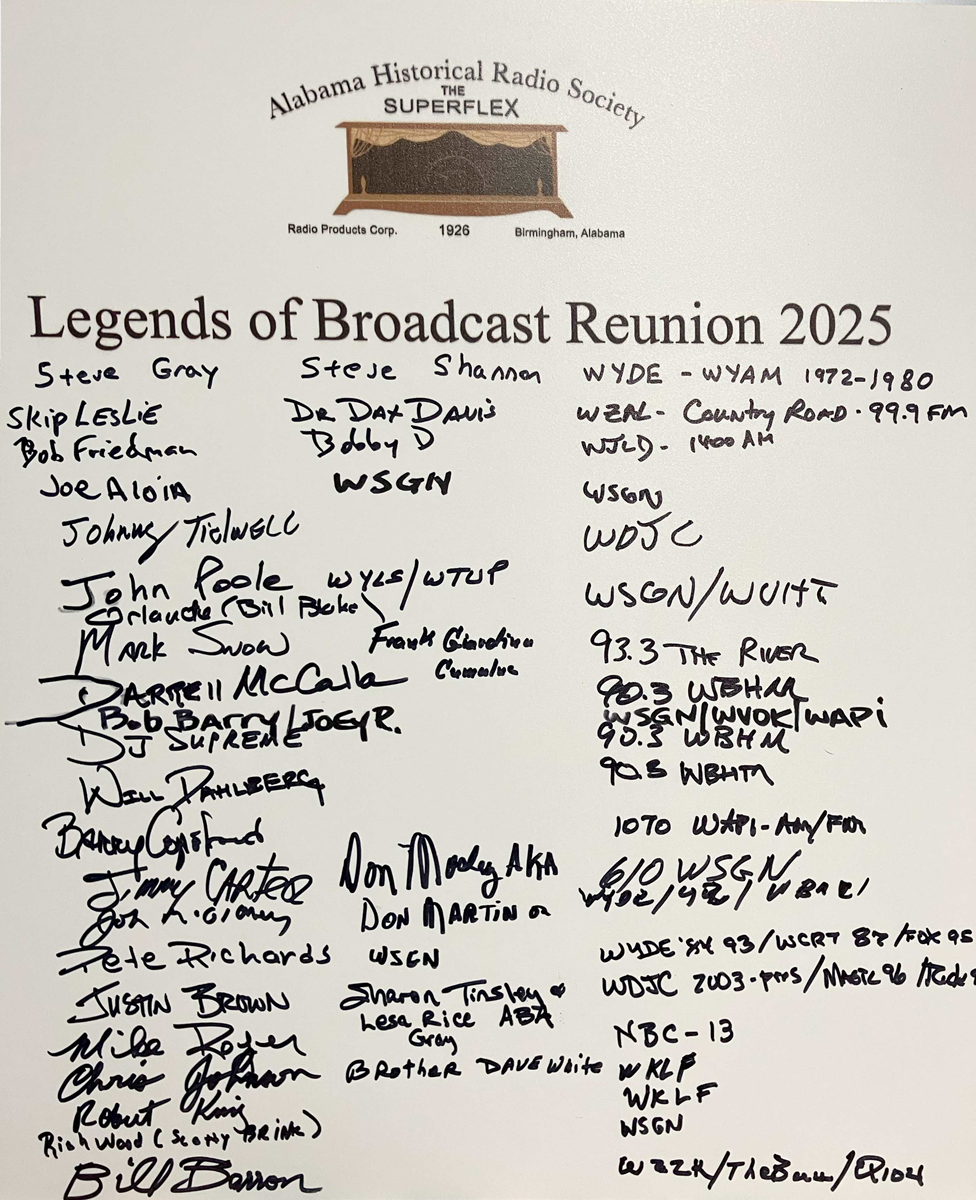 Alabama Historical Radio Society
THE
SUPERFLEX
Radio Products Corp. 1926 Birmingham, Alabama
Legends of Broadcast Reunion 2025
Steve Gray Steve Shannon WYDE - WYAM 1972-1980
Skip LESLIE DR DAX DAVIS WZAL - Country ROAD · 99.9 FM
Bob Friedman Bobby D WJLD - 1400 AM
Joe Aloia WSGN WSGN
Johnny TIDWELL WDJC
John Poole WYLS/WTUP WSGN/WVHT
(Bill Blake)
MARK SNOW Frank Giardina 93.3 THE RIVER
Cumulus
DARRELL McCalla 90.3 WBHM
Bob BARRY/JOEY R. WSGN/WVOK/WAPI
DJ SUPREME 90.3 WBHM
WILL DAHLBERG 90.3 WBHM
BARRY 1070 WAPI-AM/FM
Don AKA
Jimmy CARTER 610 WSGN
DON MARTIN on
Pete Richards WSGN WYDE 93/WCRT 87/FOX 95
JUSTIN BROWN Sharon Tinsley & WDJC 2003-/MAGIC 96
Lesa Rice ABA
Gray
Mike Royer NBC-13
Chris Johnson BRother DAVE White WKLF
Robert King WKLF
Rich Wood (Scotty BRINK) WSGN
Bill Barron WZZK/The /Q104